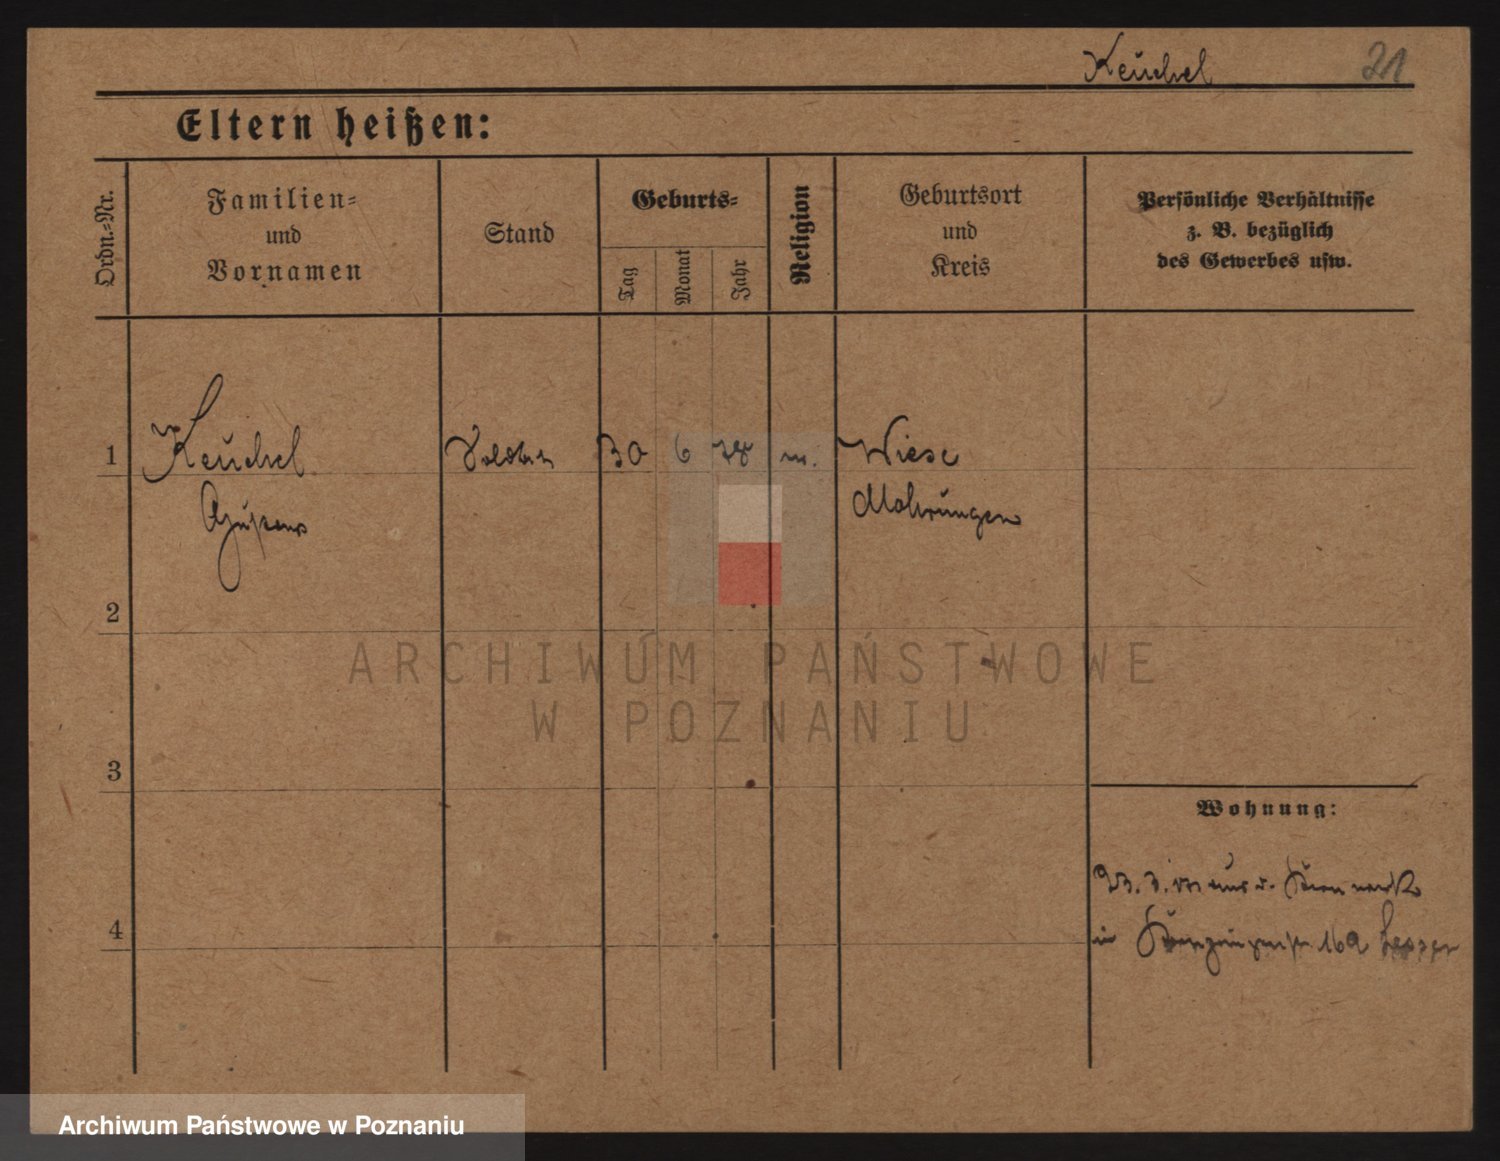 Keuchel 21
Eltern heißen:
Ordn.=Nr.
Familien=
und
Vornamen
Stand
Geburts=
Tag
Monat
Jahr
Religion
Geburtsort
und
Kreis
Persönliche Verhältnisse
z. B. bezüglich
des Gewerbes usw.
1 Keuchel Soldat 30 6 78 Wiese
Mohrungen
2
ARCHIWUM PAŃSTWOWE
W POZNANIU
3
Wohnung:
4
in 162
Archiwum Państwowe w Poznaniu